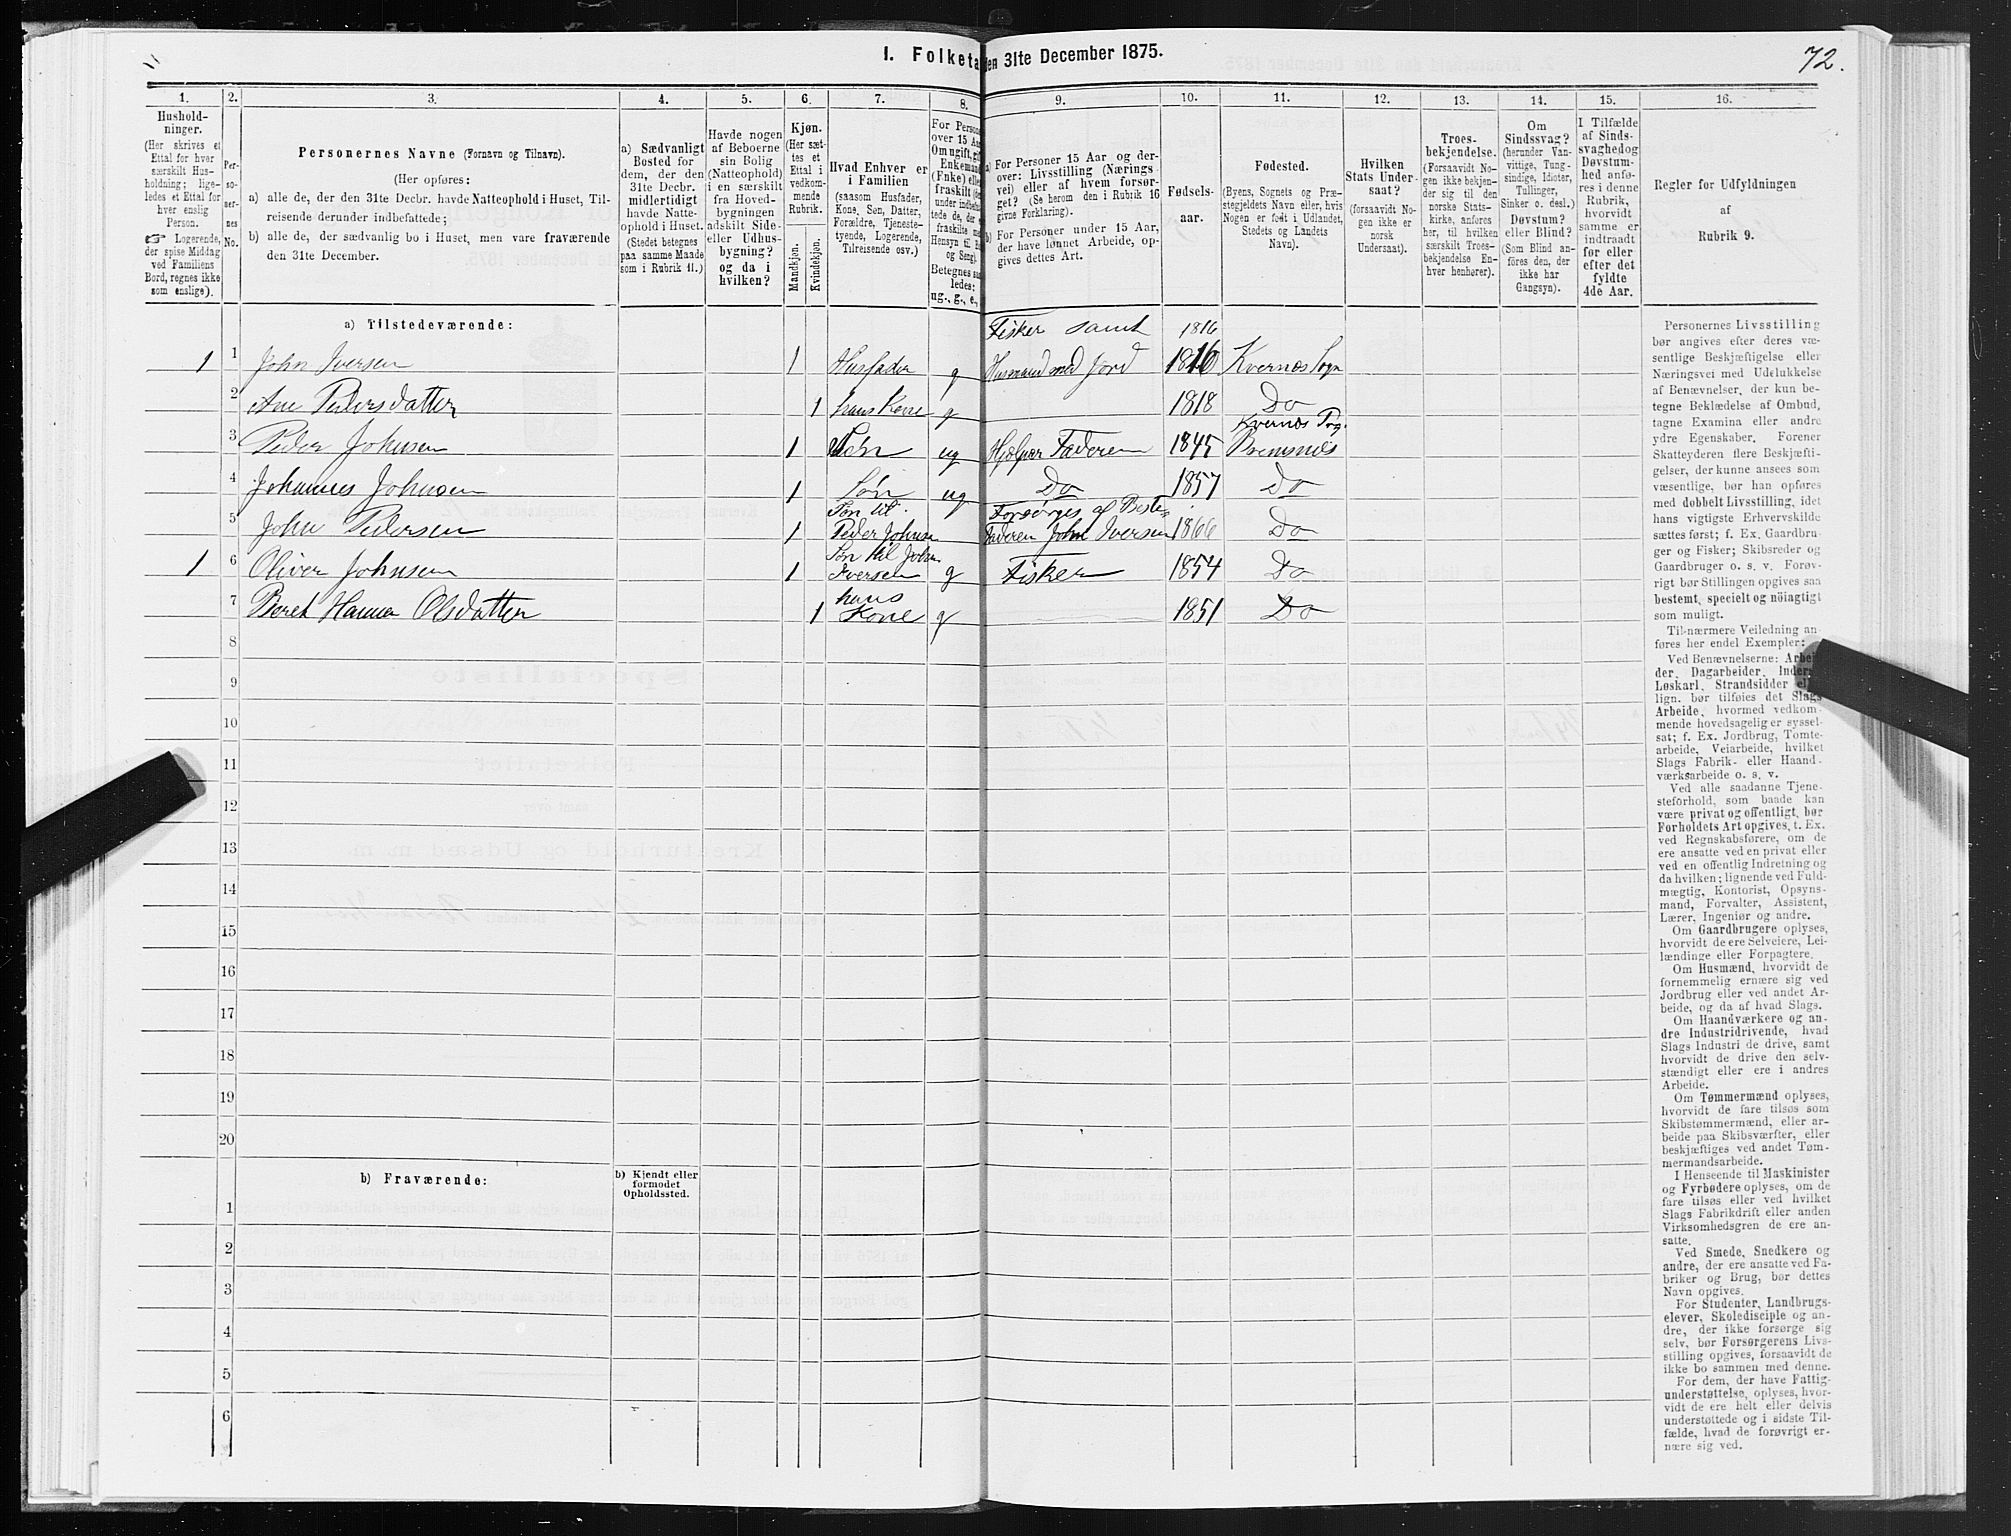 I. Folketa den 31te December 1875.
72.
1. 2. 3. 4. 5. 6. 7. 8. 9. 10. 11. 12. 13. 14. 15. 16.
Hushold-
ninger.
(Her skrives et
Ettal for hver
særskilt Hus-
holdning; lige-
ledes et Ettal for
hver enslig
Person.
☞ Logerende,
der spise Middag
ved Familiens
Bord, regnes ikke
som enslige).
Per-
so-
ner-
nes
No.
Personernes Navne (Fornavn og Tilnavn).
(Her opføres:
a) alle de, der den 31te Decbr. havde Natteophold i Huset, Til-
reisende derunder indbefattede;
b) alle de, der sædvanlig bo i Huset, men vare fraværende
den 31te December.
a) Sædvanligt
Bosted for
dem, der den
31te Decbr.
midlertidigt
havde Natte-
ophold i Huset.
(Stedet betegnes
paa samme Maade
som i Rubrik 11.)
Havde nogen
af Beboerne
sin Bolig
(Natteophold)
i en særskilt
fra Hoved-
bygningen
adskilt Side-
eller Udhus-
bygning?
og da i
hvilken?
Kjøn.
(Her sæt-
tes et
Ettal i
vedkom-
mende
Rubrik.
Mandkjøn.
Kvindekjøn.
Hvad Enhver er
i Familien
(saasom Husfader,
Kone, Søn, Datter,
Forældre, Tjeneste-
tyende, Logerende,
Tilreisende osv.)
For Person
over 15 Aa
Om ugift, gif
Enkemand
(Enke) elle
fraskilt
under indbefat-
tede de, der
fraskilte m
Hensyn til B
og Seng).
Betegnes saa
ledes:
ug., g., e.,
a) For Personer 15 Aar og der-
over: Livsstilling (Nærings-
vei) eller af hvem forsør-
get? (Se herom den i Rubrik 16
givne Forklaring).
b) For Personer under 15 Aar,
der have lønnet Arbeide, op-
gives dettes Art.
Fødsels-
aar.
Fødested.
(Byens, Sognets og Præ-
stegjeldets Navn eller, hvis
Nogen er født i Udlandet,
Stedets og Landets
Navn).
Hvilken
Stats Under-
saat?
(forsaavidt No-
gen ikke er
norsk
Undersaat).
Troes-
bekjendelse.
(Forsaavidt No-
gen ikke bekjen-
der sig til den
norske Stats-
kirke, anføres
her, til hvilken
særskilt Troes-
bekjendelse En-
hver henhører).
Om
Sindssvag?
(herunder Van-
vittige, Tung-
sindige, Idioter,
Tullinger,
Sinker o. desl.)
Døvstum?
eller Blind?
(Som Blind an-
føres den, der
ikke har
Gangsyn).
I Tilfælde
af Sinds-
svaghed og
Døvstum-
hed anfø-
res i denne
Rubrik,
hvorvidt
samme er
indtraadt
før eller
efter det
fyldte
4de Aar.
Regler for Udfyldningen
af
Rubrik 9.
a) Tilstedeværende:
Fisker samt 1816
1 1 John Iversen 1 Husfader g Husmand med Jord 1816 Kvernæs Sogn
2 Ane Pedersdatter 1 hans Kone g 1818 Do
Kvernæs Prg.
3 Peder Johnsen 1 Søn ug Hjelper Faderen 1845 Bremsnæs
4 Johannes Johnsen 1 Søn ug Do 1857 Do
Søn til Forsørges af Beste-
5 John Pedersen 1 Peder Johnsen Faderen John Iversen 1866 Do
Søn til John
1 6 Oliver Johnsen 1 Iversen g Fisker 1854 Do
hans
7 Beret Hanna Olsdatter 1 Kone g 1851 Do
8
9
10
11
12
13
14
15
16
17
18
19
20
b) Fraværende:
b) Kjendt eller
formodet
Opholdssted.
1
2
3
4
5
6
Personernes Livsstilling
bør angives efter deres væ-
sentlige Beskjæftigelse eller
Næringsvei med Udelukkelse
af Benævnelser, der kun be-
tegne Beklædelse af Ombud,
tagne Examina eller andre
ydre Egenskaber. Forener
Skatteyderen flere Beskjæfti-
gelser, der kunne ansees som
væsentlige, bør han opføres
med dobbelt Livsstilling, idet
hans vigtigste Erhvervskilde
sættes først; f. Ex. Gaardbru-
ger og Fisker; Skibsreder og
Gaardbruger o. s. v. Forøv-
rigt bør Stillingen opgives saa
bestemt, specielt og nöiagtigt
som muligt.
Til nærmere Veiledning an-
føres her endel Exempler:
Ved Benævnelserne: Arbei-
der, Dagarbeider, Inderst,
Løskarl, Strandsidder eller
lign. bør tilføies det Slags
Arbeide, hvormed vedkom-
mende hovedsagelig er syssel-
sat; f. Ex. Jordbrug, Tomte-
arbeide, Veiarbeide, hvilket
Slags Fabrik- eller Haand-
værksarbeide o. s. v.
Ved alle saadanne Tjene-
steforhold, som baade kan
være privat og offentligt, bør
Forholdets Art opgives, t. Ex.
ved Regnskabsførere, om de
ere ansatte ved en privat eller
ved en offentlig Indretning og
da hvilken; lignende ved Fuld-
mægtig, Kontorist, Opsyns-
mand, Forvalter, Assistent,
Lærer, Ingeniør og andre.
Om Gaardbrugere oplyses,
hvorvidt de ere Selveiere, Lei-
lændinge eller Forpagtere.
Om Husmænd, hvorvidt de
fornemmelig ernære sig ved
Jordbrug eller ved andet Ar-
beide, og da af hvad Slags.
Om Haandværkere og an-
dre Industridrivende, hvad
Slags Industri de drive, samt
hvorvidt de drive den selv-
stændigt eller ere i andres
Arbeide.
Om Tømmermænd oplyses,
hvorvidt de fare tilsøs som
Skibstømmermænd, eller ar-
beide paa Skibsværfter, eller
beskjæftiges ved andet Tøm-
mermandsarbeide.
I Henseende til Maskinister
og Fyrbødere oplyses, om de
fare tilsøs eller ved hvilket
Slags Fabrikdrift eller anden
Virksomhedsgren de ere an-
satte.
Ved Smede, Snedkere og
andre, der ere ansatte ved Fa-
briker og Brug, bør dettes
Navn opgives.
For Studenter, Landbrugs-
elever, Skoledisciple og an-
dre, der ikke forsørge sig
selv, bør Forsørgerens Livs-
stilling opgives, forsaavidt de
ikke bo sammen med denne.
For dem, der have Fattig-
understøttelse, oplyses, hvor-
vidt de ere helt eller delvis
understøttede og i sidste Til-
fælde, hvad de forøvrigt er-
nære sig ved.